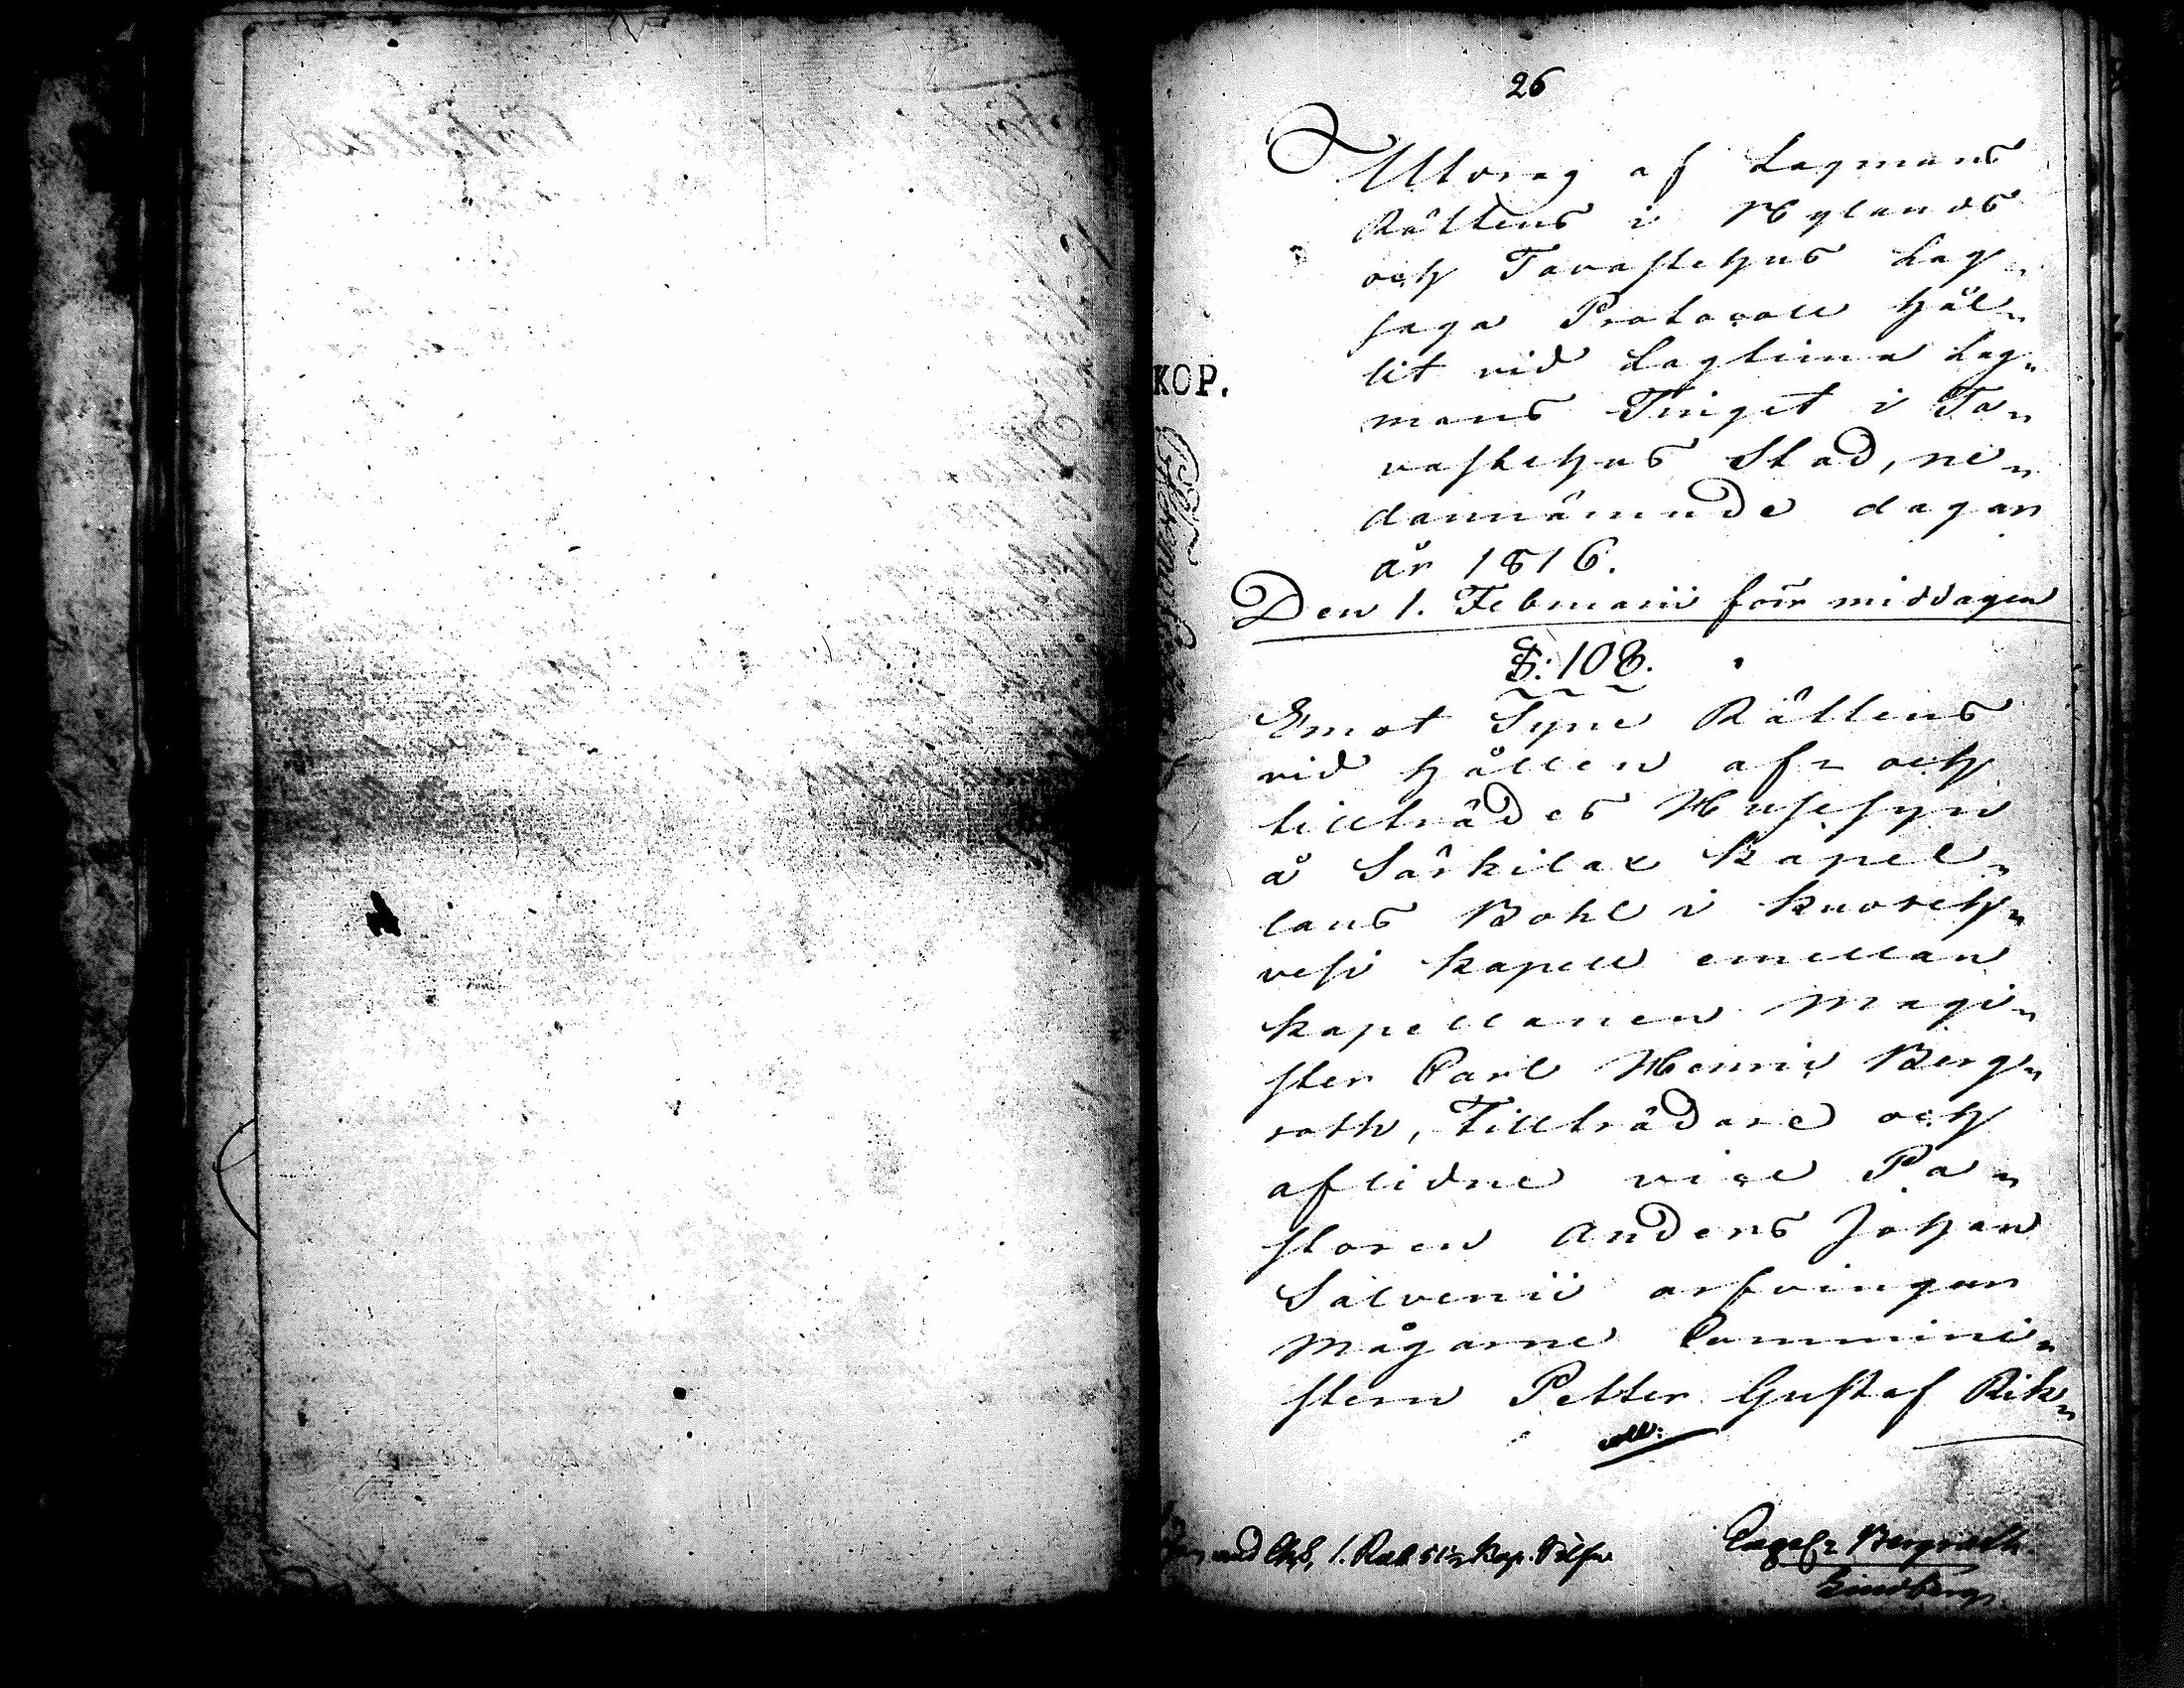 26
Utdrag af Lagmans
Rättens i Nylands
och Tavastehus Lag-
saga Protocoll hål-
lit vid Lagtima Lag-
mans Tinget i Ta-
vastehus Stad, ne-
dannämnde dagar
år 1816.
KOP.
Den 1. Februarii för middagen
§: 108.
Emot Syne Rättens
vid hållen af- och
tillträdes Husesyn
å Särkilax Kapel-
lans Bohl i Kuoreh-
vesi Kapell emellan
Kapellanen Magi-
ster Carl Henric Berg-
roth, Tillträdare och
aflidne vice Pa-
storen Anders Johan
Salvenii arfvingar
Mågarne Commini-
stern Petter Gustaf Rik-
1. Rub. 51½ Kop. Silfver
Bergroth
Lindberg